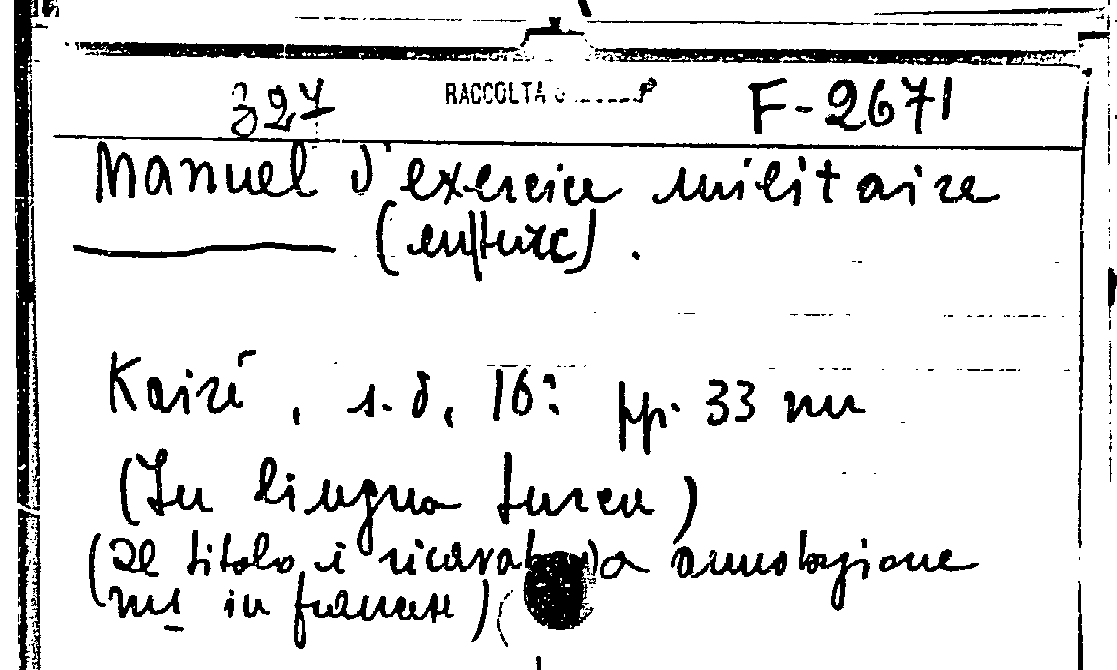 327 RACCOLTA F-2671
Manuel d'exercice militaire
(en turc).
Kairé, s.d, 16° pp. 33 nn
(In lingua turca)
(Il titolo è ricavato da annotazione
ms in francese)